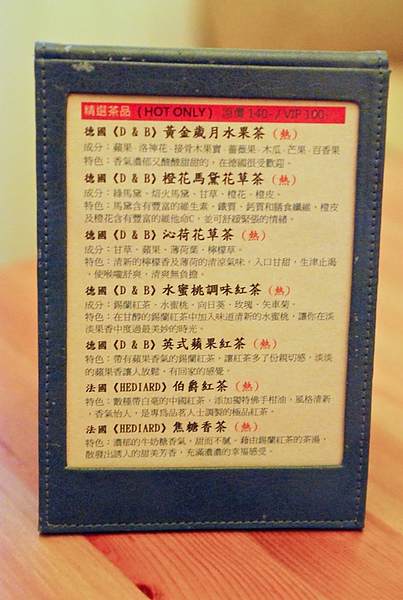 精選茶品 (HOT ONLY) 原價 140- / VIP 100-
德國《D & B》黃金歲月水果茶（熱）
成分：蘋果、洛神花、接骨木果實、薔薇果、木瓜、芒果、百香果
特色：香氣濃郁又酸酸甜甜的，在德國很受歡迎。
德國《D & B》橙花馬黛花草茶（熱）
成分：綠馬黛、焙火馬黛、甘草、橙花、橙皮。
特色：馬黛含有豐富的維生素、鐵質、鈣質和膳食纖維，橙皮
及橙花含有豐富的維他命C，並可舒緩緊張的情緒。
德國《D & B》沁荷花草茶（熱）
成分：甘草、蘋果、薄荷葉、檸檬草。
特色：清新的檸檬香及薄荷的清涼氣味，入口甘甜，生津止渴
、使喉嚨舒爽，清爽無負擔。
德國《D & B》水蜜桃調味紅茶（熱）
成分：錫蘭紅茶、水蜜桃、向日葵、玫瑰、矢車菊。
特色：在甘醇的錫蘭紅茶中加入味道清新的水蜜桃，讓你在淡
淡果香中度過最美妙的時光。
德國《D & B》英式蘋果紅茶（熱）
特色：帶有蘋果香氣的錫蘭紅茶，讓紅茶多了份親切感，淡淡
的蘋果香讓人放鬆，有回家的感覺。
法國《HEDIARD》伯爵紅茶（熱）
特色：數種帶白毫的中國紅茶，添加獨特佛手柑油，風格清新
，香氣怡人，是專為品茗人士調製的極品紅茶。
法國《HEDIARD》焦糖香茶（熱）
特色：濃郁的牛奶糖香氣，甜而不膩。藉由錫蘭紅茶的茶湯，
散發出誘人的甜美芳香，充滿濃濃的幸福感受。